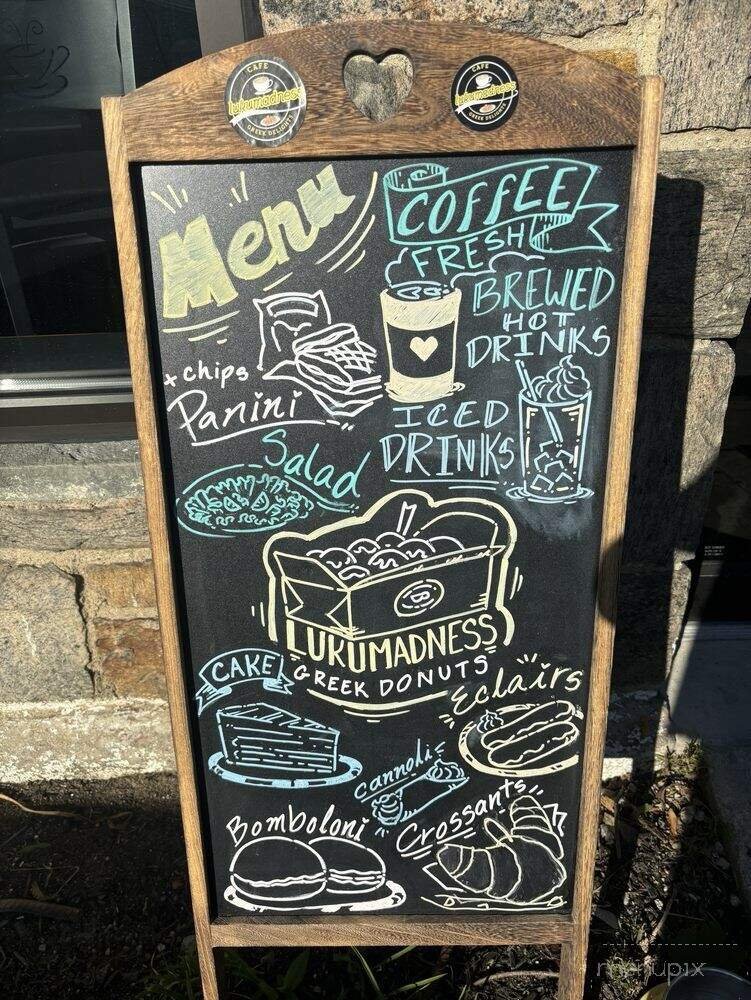 CAFE
lukumadness
GREEK DELIGHTS
CAFE
lukumadness
GREEK DELIGHTS
Menu
COFFEE
FRESH
BREWED
HOT
DRINKS
+ chips
Panini
ICED
DRINKS
Salad
LUKUMADNESS
GREEK DONUTS
CAKE
Eclairs
Cannoli
Bomboloni
Crossants
menupix